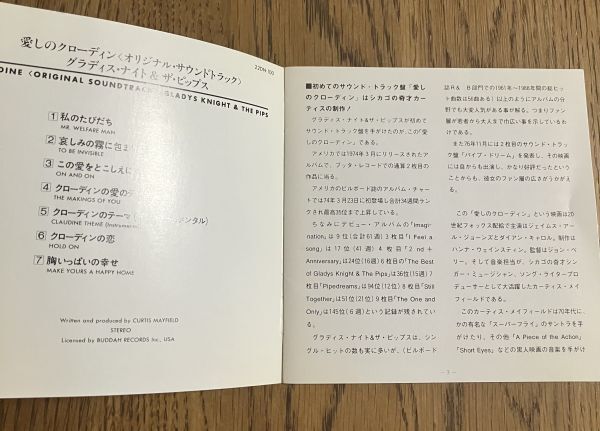 22DN-100
愛しのクローディン〈オリジナル・サウンドトラック〉
グラディス・ナイト & ザ・ピップス
DINE 〈ORIGINAL SOUNDTRACK GLADYS KNIGHT & THE PIPS
1 私のたびだち
MR. WELFARE MAN
2 哀しみの霧に包ま
TO BE INVISIBLE
3 この愛をとこしえに
ON AND ON
4 クローディンの愛のテ
THE MAKINGS OF YOU
5 クローディンのテーマ ンタル)
CLAUDINE THEME (Instrumen
6 クローディンの恋
HOLD ON
7 胸いっぱいの幸せ
MAKE YOURS A HAPPY HOME
Written and produced by CURTIS MAYFIELD
STEREO
Licensed by BUDDAH RECORDS Inc., USA
■初めてのサウンド・トラック盤「愛し
のクローディン」はシカゴの奇才カー
ティスの制作!
グラディス・ナイト&ザ・ピップスが初めて
サウンド・トラック盤を手がけたのが、この「愛
しのクローディン」である。
アメリカでは1974年3月にリリースされたア
ルバムで、ブッダ・レコードでの通算2枚目の
作品に当る。
アメリカのビルボード誌のアルバム・チャー
トでは74年3月23日に初登場し合計34週間ラン
クされ最高35位まで上昇している。
ちなみにデビュー・アルバムの「Imagi-
nation」は9位(合計61週)3枚目「I Feel a
song」は17位(41週)4枚目「2nd
Anniversary」は24位(16週)6枚目の「The Best
of Gladys Knight & The Pips」は36位(15週)7
枚目「Pipedreams」は94位(12位)8枚目「Still
Together」は51位(21位)9枚目「The One and
Only」は145位(6週)という記録が残されてい
る。
グラディス・ナイト&ザ・ピップスは、シン
グル・ヒットの数も実に多いが、(ビルボード
誌R&B部門での1961年〜1988年間の総ヒッ
ト曲数は56曲ある)以上のようにアルバムの分
野でも大変人気がある事が解る。つまりファン
層が若者から大人まで巾広い事を示しているわ
けである。
又76年11月には2枚目のサウンド・トラッ
ク盤「パイプ・ドリーム」を発表し、その映画
には自からも出演し、かなり好評だったという
ことからも、彼女のファン層の広さがうかがえ
る。
この「愛しのクローディン」という映画は20
世紀フォックス配給で主演はジェイムス・アー
ル・ジョーンズとダイアン・キャロル。制作は
ハンナ・ウェインスティン。監督はジョン・ベ
リー。そして音楽担当が、シカゴの奇才シン
ガー・ミュージシャン、ソング・ライタープロ
デューサーとして大活躍したカーティス・メイ
フィールドである。
このカーティス・メイフィールドは70年代に、
かの有名な「スーパーフライ」のサントラを手
がけたり、その他「A Piece of the Action」
「Short Eyes」などの黒人映画の音楽を手がけ